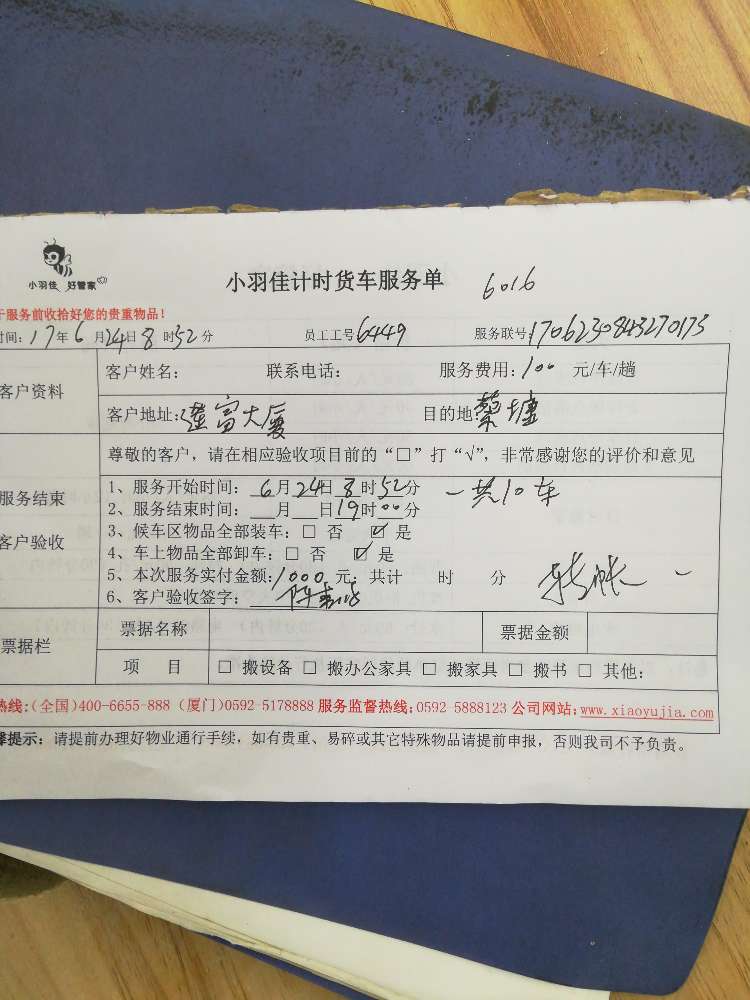 小羽佳 好管家
小羽佳计时货车服务单 6016
服务前收拾好您的贵重物品！
时间：17年6月24日8时52分 员工工号6449 服务联号1706230843270173
客户资料
客户姓名： 联系电话： 服务费用：100 元/车/趟
客户地址：莲富大厦 目的地：蔡塘
尊敬的客户，请在相应验收项目前的“□”打“√”，非常感谢您的评价和意见
服务结束
客户验收
1、服务开始时间：6月24日8时52分 一共10车
2、服务结束时间： 月 日19时00分
3、候车区物品全部装车：□ 否 ☑ 是
4、车上物品全部卸车：□ 否 ☑ 是
5、本次服务实付金额：1000元；共计 时 分 转帐
6、客户验收签字：
票据栏
票据名称 票据金额
项 目 □ 搬设备 □ 搬办公家具 □ 搬家具 □ 搬书 □ 其他：
热线：(全国)400-6655-888 (厦门)0592-5178888 服务监督热线：0592-5888123 公司网站：www.xiaoyujia.com
提示：请提前办理好物业通行手续，如有贵重、易碎或其它特殊物品请提前申报，否则我司不予负责。